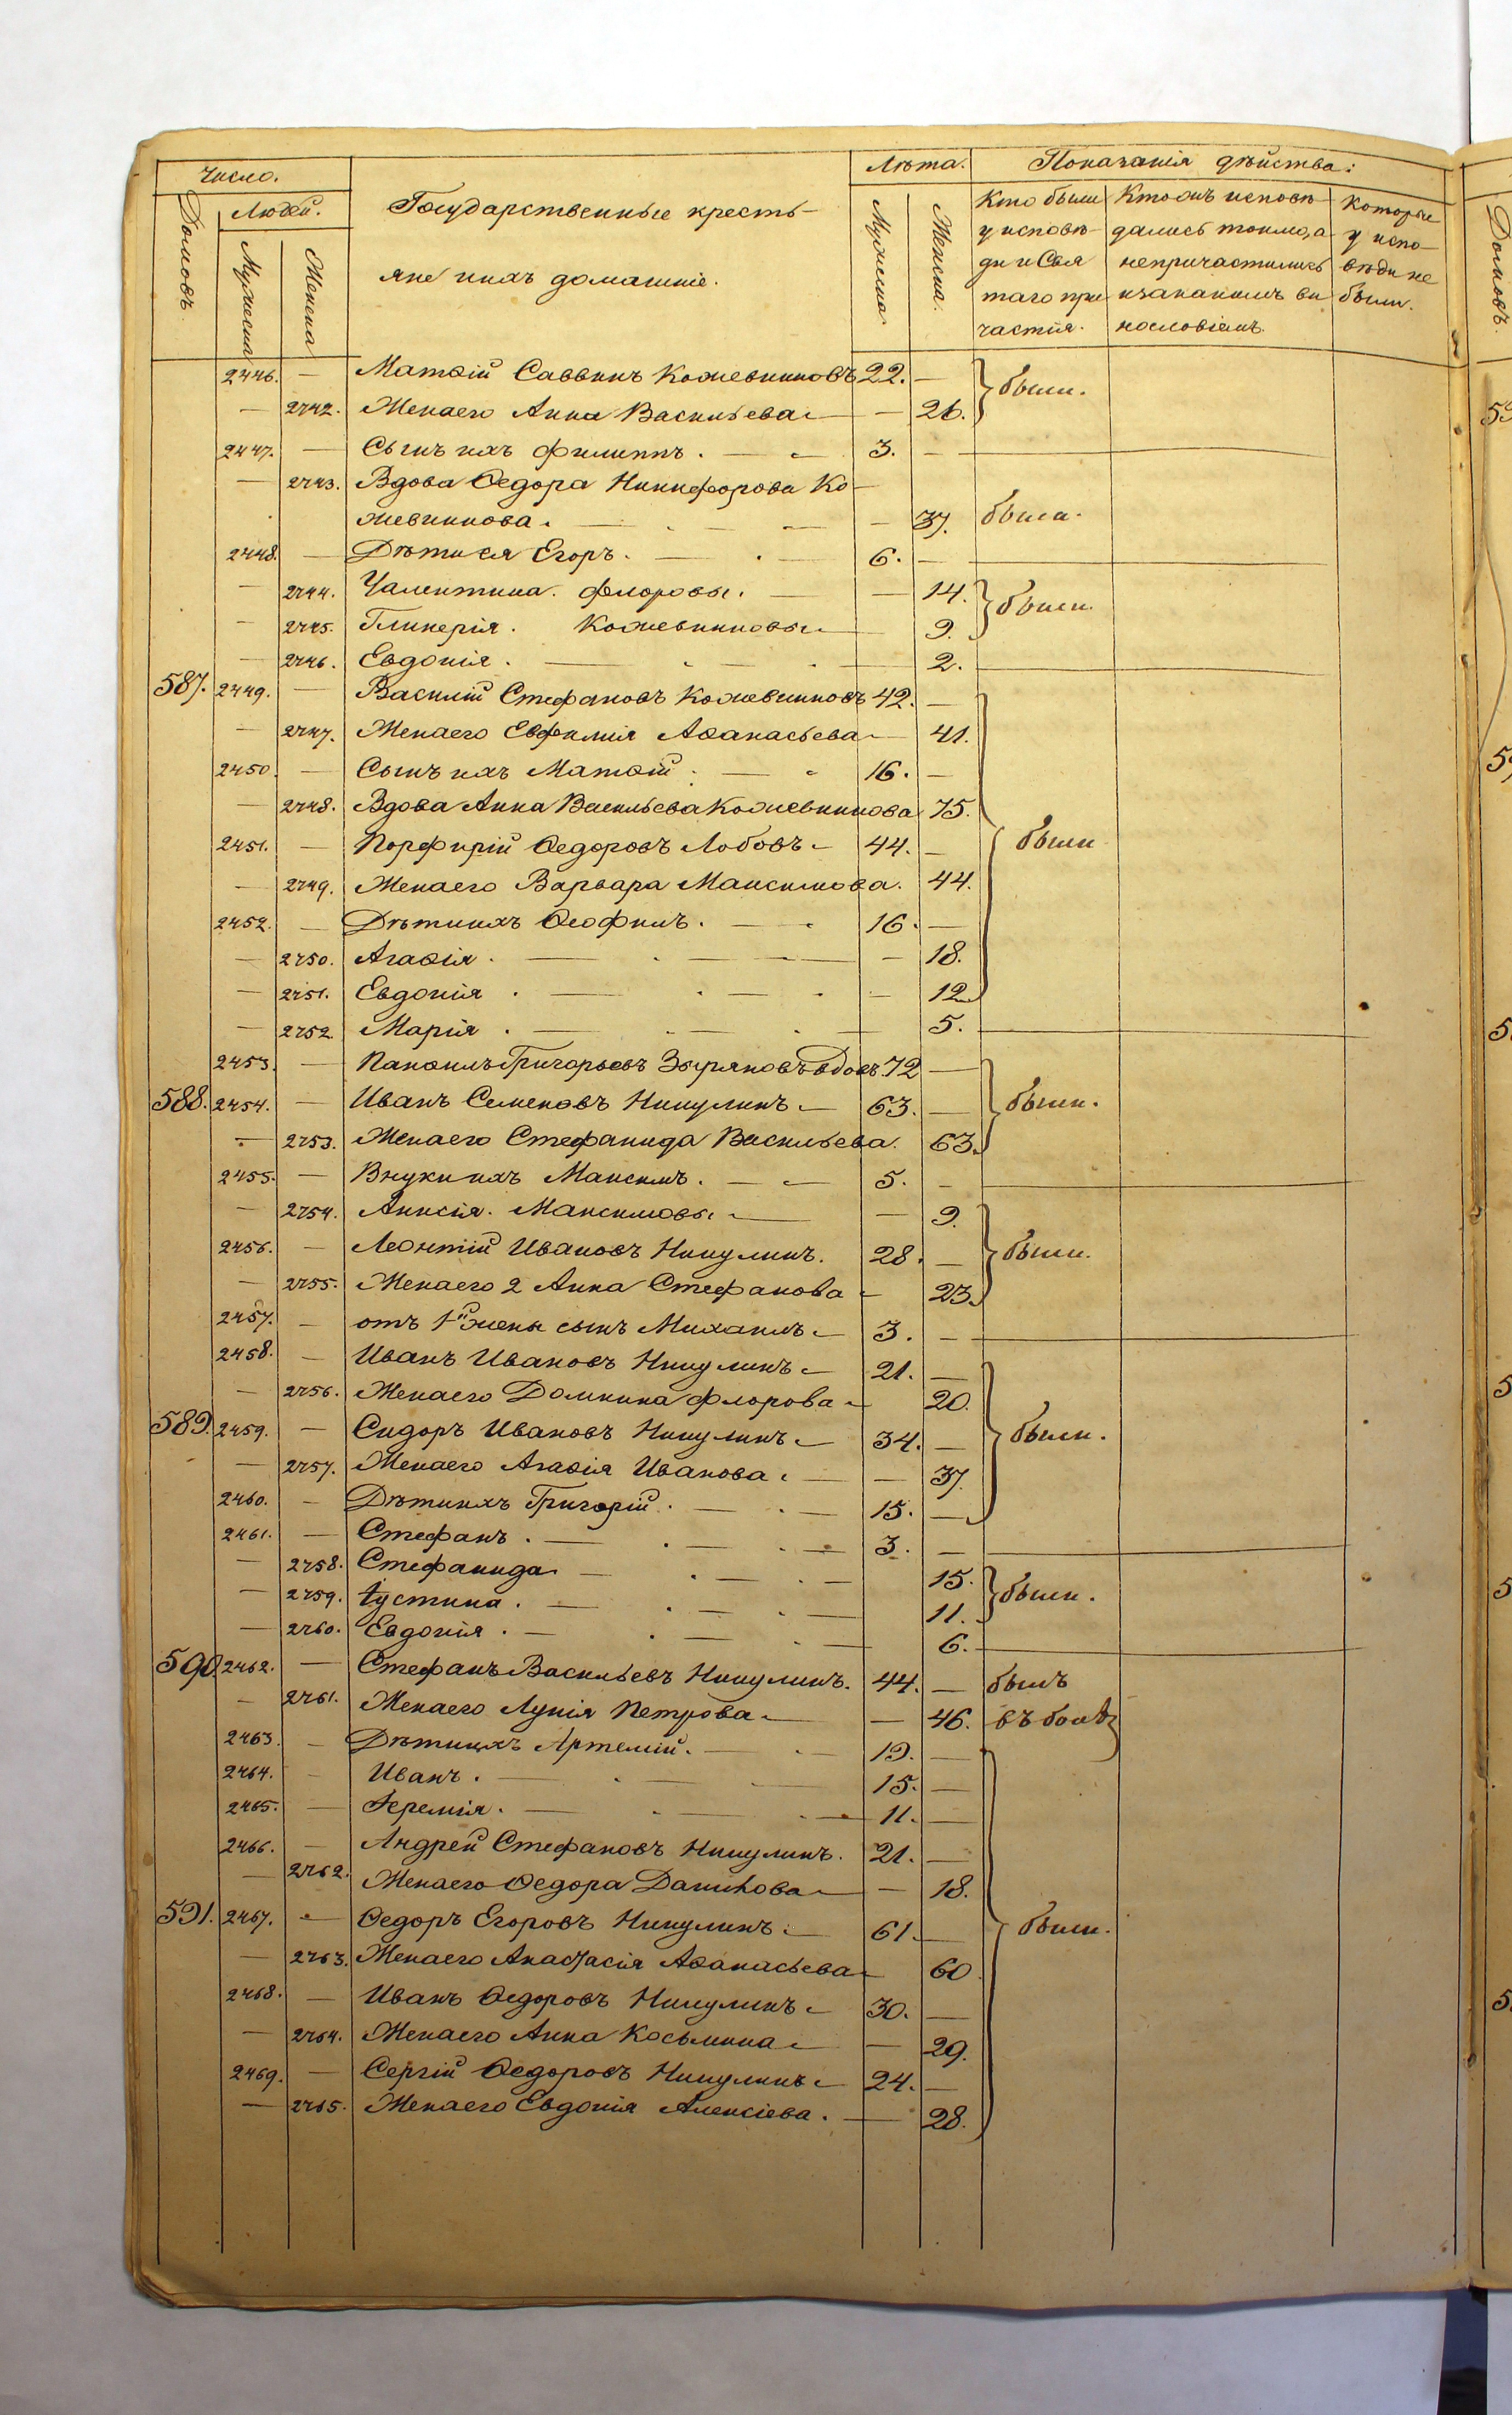 Число. Лѣта. Показанія дѣйства:
Домовъ. Людей. Мужеска Женска
Государственные кресть-
яне ихъ домашніе.
Мужеска. Женска.
Кто были у исповѣ-ди и Свя таго при частія.
Кто жъ исповѣ дались токмо, а непричастились и за какимъ ви нословіемъ.
Которые у испо-вѣди не были.
2446. — Матѳій Саввинъ Кожевниковъ 22. — были.
— 2742. Жена его Анна Васильева — 26.
2447. — Сынъ ихъ Филиппъ. 3. —
— 2743. Вдова Ѳедора Никифорова Ко-
жевникова. — 37. была.
2448. — Дѣти ея Егоръ. 6. —
— 2744. Чалентина. Флоровы. — 14. были.
— 2745. Гликерія. Кожевниковы — 9.
— 2746. Евдокія. — 2.
587. 2449. — Василій Стефановъ Кожевниковъ 42. —
— 2747. Жена его Евфимія Аѳанасьева — 41.
2450. — Сынъ ихъ Матѳій. 16. —
— 2748. Вдова Анна Васильева Кожевникова 75.
2451. — Порфирій Ѳедоровъ Лобовъ 44. — были
— 2749. Жена его Варвара Максимова. 44.
2452. — Дѣти ихъ Ѳеофилъ. 16. —
— 2750. Агаѳія. — 18.
— 2751. Евдокія. — 12.
— 2752. Марія. — 5.
2453. — Панфилъ Григорьевъ Зыряновъ вдовъ 72 —
588. 2454. — Иванъ Семеновъ Никулинъ 63. — были.
— 2753. Жена его Стефанида Васильева. 63.
2455. — Внуки ихъ Максимъ. 5. —
— 2754. Анисія. Максимовы — 9.
2456. — Леонтій Ивановъ Никулинъ. 28. — были.
— 2755. Жена его 2 Анна Стефанова 23.
2457. — отъ 1й жены сынъ Михаилъ 3. —
2458. — Иванъ Ивановъ Никулинъ 21. —
— 2756. Жена его Домника Флорова 20.
589. 2459. — Сидоръ Ивановъ Никулинъ 34. — были.
— 2757. Жена его Агаѳія Иванова. — 37.
2460. — Дѣти ихъ Григорій. 15. —
2461. — Стефанъ. 3. —
— 2758. Стефанида. — 15. были.
— 2759. Іустина. — 11.
— 2760. Евдокія. — 6.
590. 2462. — Стефанъ Васильевъ Никулинъ. 44. — былъ
— 2761. Жена его Лукія Петрова — 46.
2463. — Дѣти ихъ Артемій. 19. —
2464. — Иванъ. 15. —
2465. — Іеремія. 11. —
2466. — Андрей Стефановъ Никулинъ. 21. —
— 2762. Жена его Ѳедора Данилова — 18.
591. 2467. — Ѳедоръ Егоровъ Никулинъ 61. — были.
— 2763. Жена его Анастасія Аѳанасьева 60.
2468. — Иванъ Ѳедоровъ Никулинъ 30. —
— 2764. Жена его Анна Косьмина — 29.
2469. — Сергій Ѳедоровъ Никулинъ 24. —
— 2765. Жена его Евдокія Алексіева. — 28.